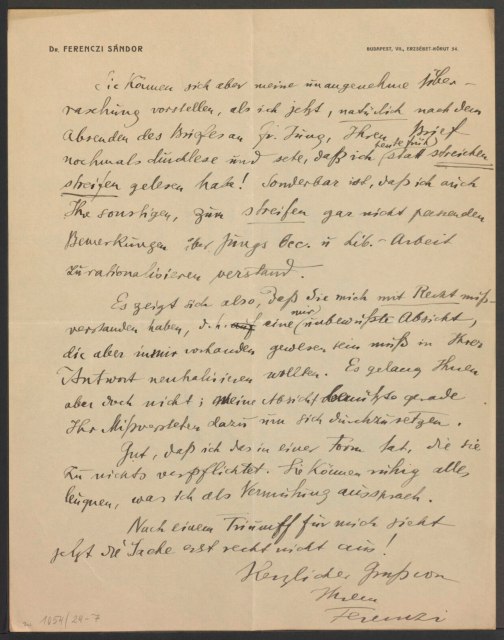 Dr. FERENCZI SÁNDOR
BUDAPEST, VII., ERZSÉBET-KÖRUT 54
Sie können sich aber meine unangenehme Über-
raschung vorstellen, als ich jetzt, natürlich nach dem
Absenden des Briefes an Fr. Jung, Ihren Brief
nochmals durchlese und sehe, daß ich (heute früh) statt streichen
streifen gelesen habe! Sonderbar ist, daß ich auch
Ihre sonstigen, zum streifen gar nicht passenden
Bemerkungen über Jungs Occ. u Lib.-Arbeit
zu rationalisieren verstand.
Es zeigt sich also, daß Sie mich mit Recht miß-
verstanden haben, d. i. auf eine (nur) unbewußte Absicht,
die aber in mir vorhanden gewesen sein muß in Ihrer
Antwort neutralisieren wollten. Es gelang Ihnen
aber doch nicht; meine Absicht benützte gerade
Ihr Mißverstehen dazu um sich durchzusetzen.
Gut, daß ich das in einer Form tat, die Sie
zu nichts verpflichtet. Sie können ruhig alles
leugnen, was ich als Vermuthung aussprach.
Nach einem Triumff für mich sieht
jetzt die Sache erst recht nicht aus!
Herzlicher Gruss von
Ihrem
Ferenczi
1054/24-7